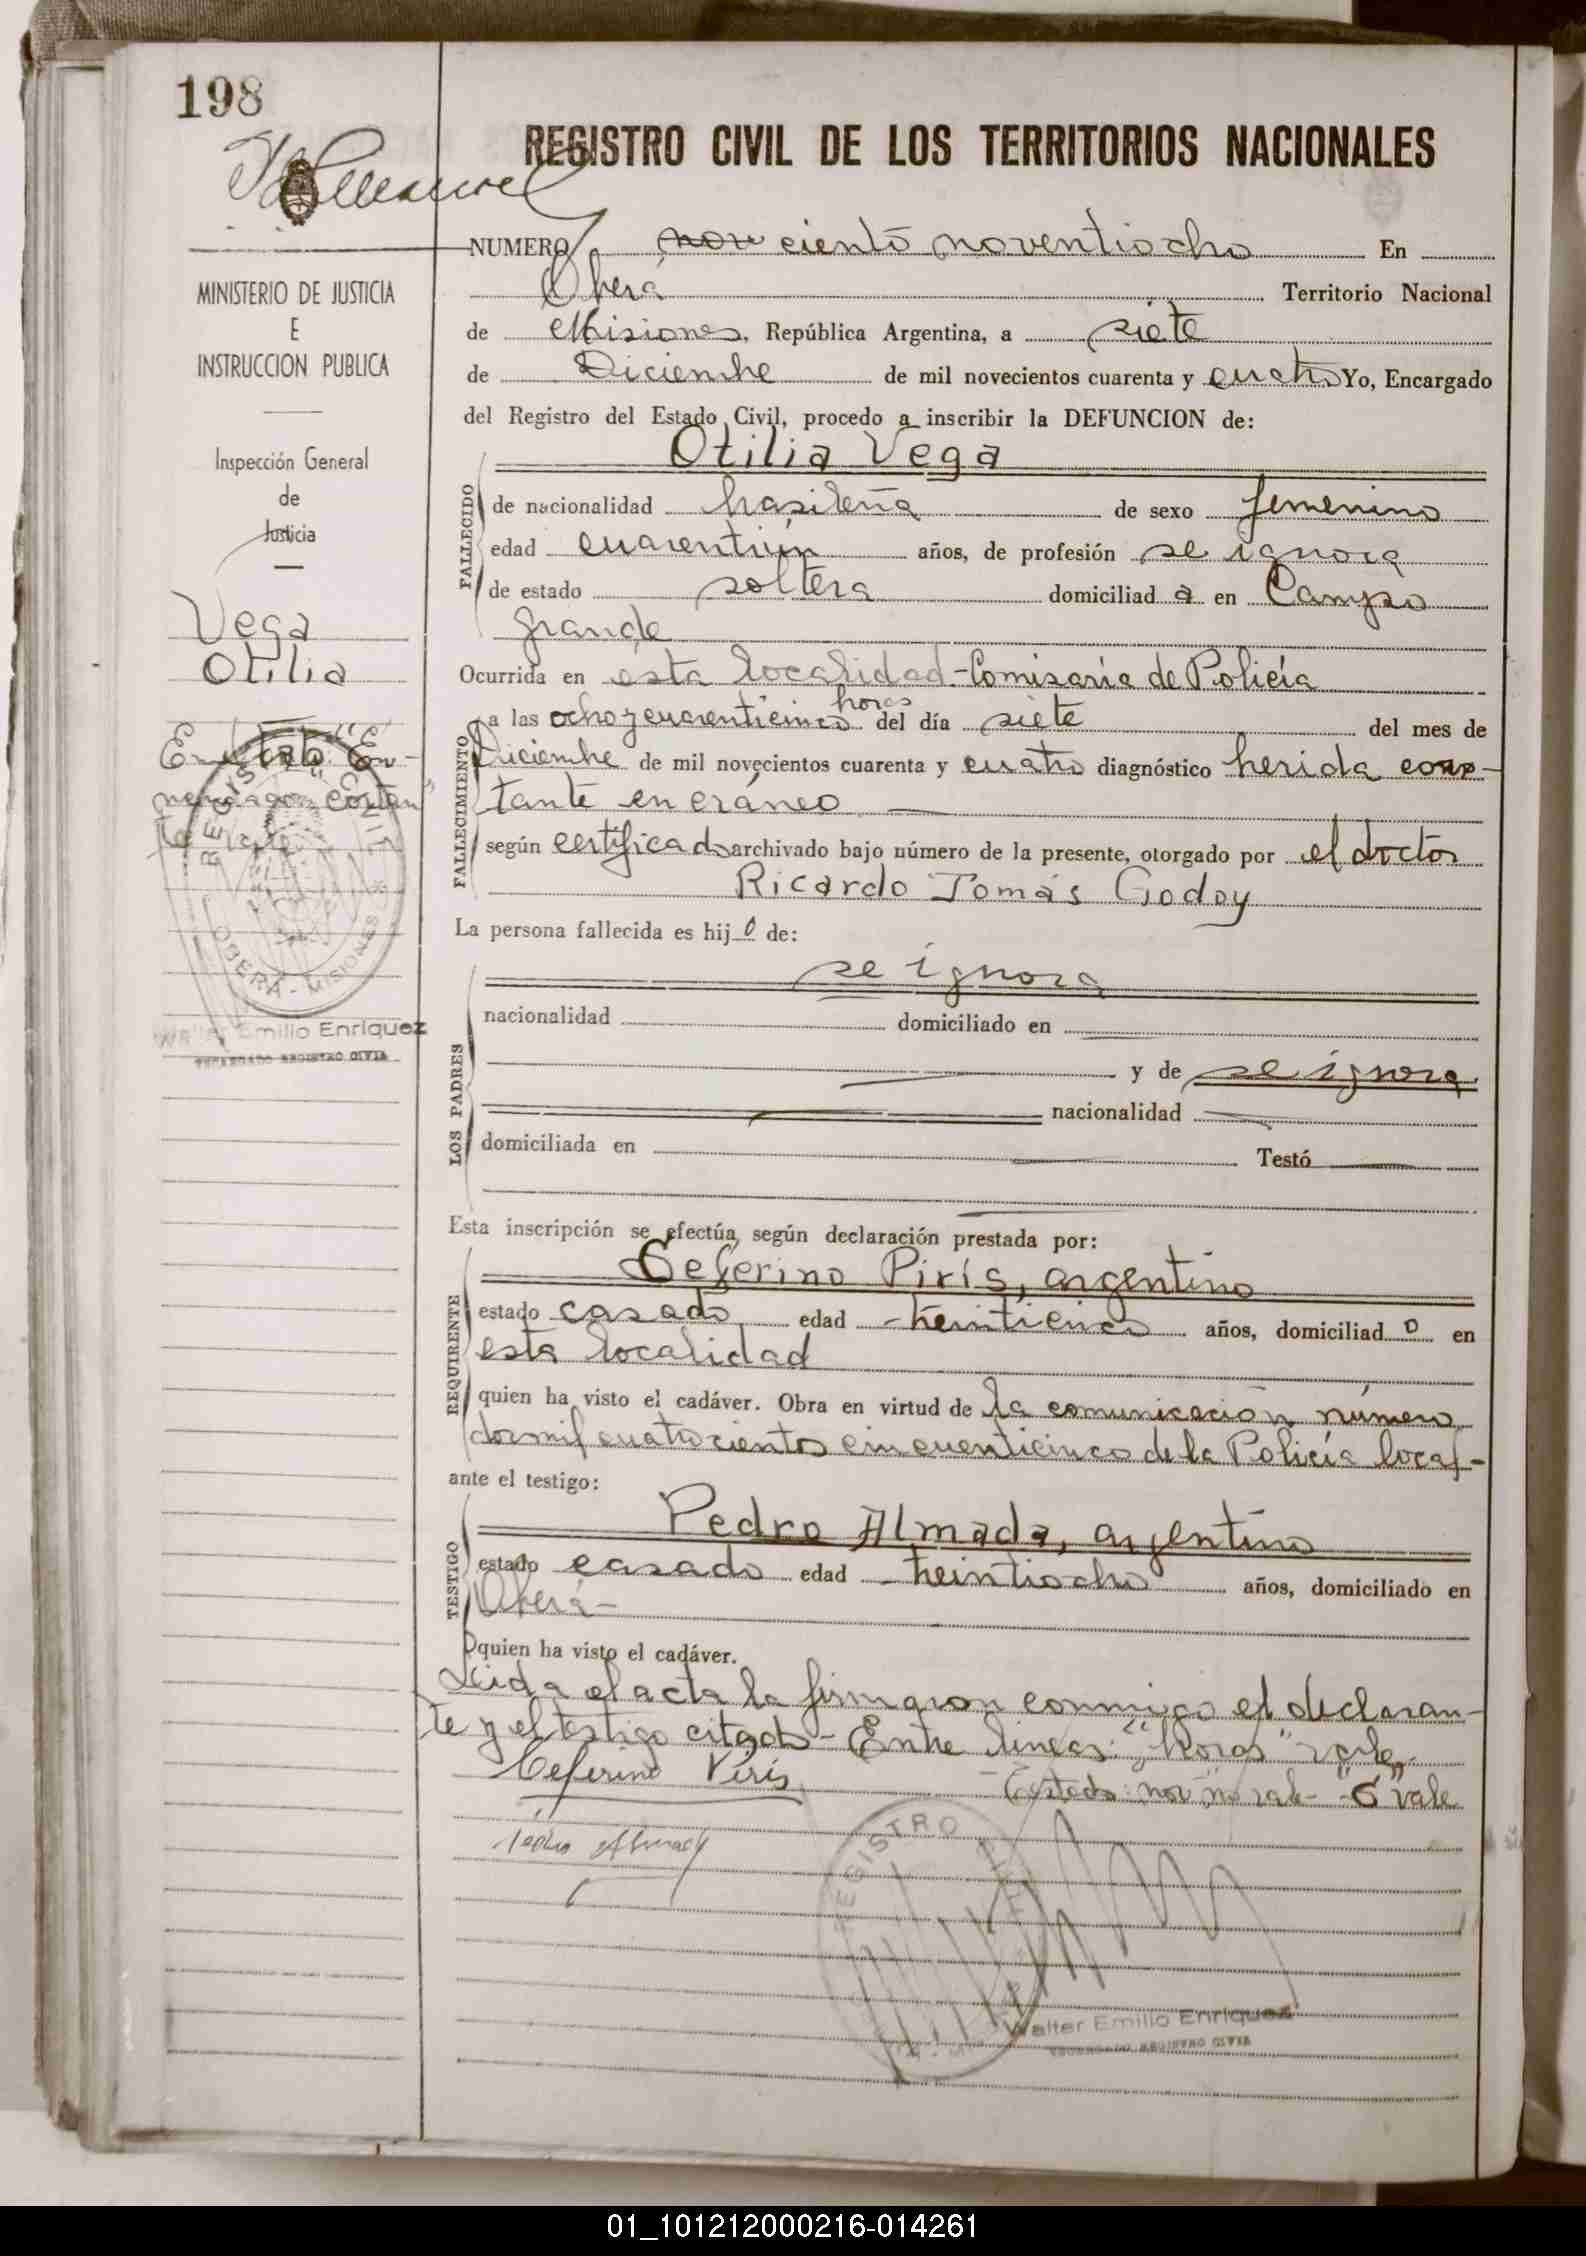 198
REGISTRO CIVIL DE LOS TERRITORIOS NACIONALES
MINISTERIO DE JUSTICIA
E
INSTRUCCION PUBLICA
Inspección General
de
Justicia
Vega
Otilia
REGISTRO CIVIL
OBERÁ - MISIONES
Walter Emilio Enriquez
ENCARGADO REGISTRO CIVIL
NUMERO nov ciento noventiocho En
Oberá Territorio Nacional
de Misiones, República Argentina, a siete
de Diciembre de mil novecientos cuarenta y cuatro Yo, Encargado
del Registro del Estado Civil, procedo a inscribir la DEFUNCION de:
Otilia Vega
FALLECIDO
de nacionalidad brasileña de sexo femenino
edad cuarentiún años, de profesión se ignora
de estado soltera domiciliad a en Campo
grande
Ocurrida en ésta localidad - Comisaría de Policía
FALLECIMIENTO
horas
a las ocho y cuarenticinco del día siete del mes de
Diciembre de mil novecientos cuarenta y cuatro diagnóstico herida cor-
tante en cráneo
según certificado archivado bajo número de la presente, otorgado por el doctor
Ricardo Tomás Godoy
La persona fallecida es hij o de:
LOS PADRES
se ignora
nacionalidad domiciliado en
y de se ignora
nacionalidad
domiciliada en Testó
Esta inscripción se efectúa, según declaración prestada por:
REQUIRENTE
Ceferino Pirís, argentino
estado casado edad treinticinco años, domiciliad o en
esta localidad
quien ha visto el cadáver. Obra en virtud de la comunicación número
dos mil cuatrocientos cincuenticinco de la Policía local-
ante el testigo:
TESTIGO
Pedro Almada, argentino
estado casado edad treintiocho años, domiciliado en
Oberá-
quien ha visto el cadáver.
Leida el acta la firmaron conmigo el declaran-
te y el testigo citado - Entre lineas: "horas" vale,
Ceferino Pirís - Testado: "nov" no vale - "C" vale
Pedro Almada
REGISTRO
Walter Emilio Enriquez
ENCARGADO REGISTRO CIVIL
01_101212000216-014261